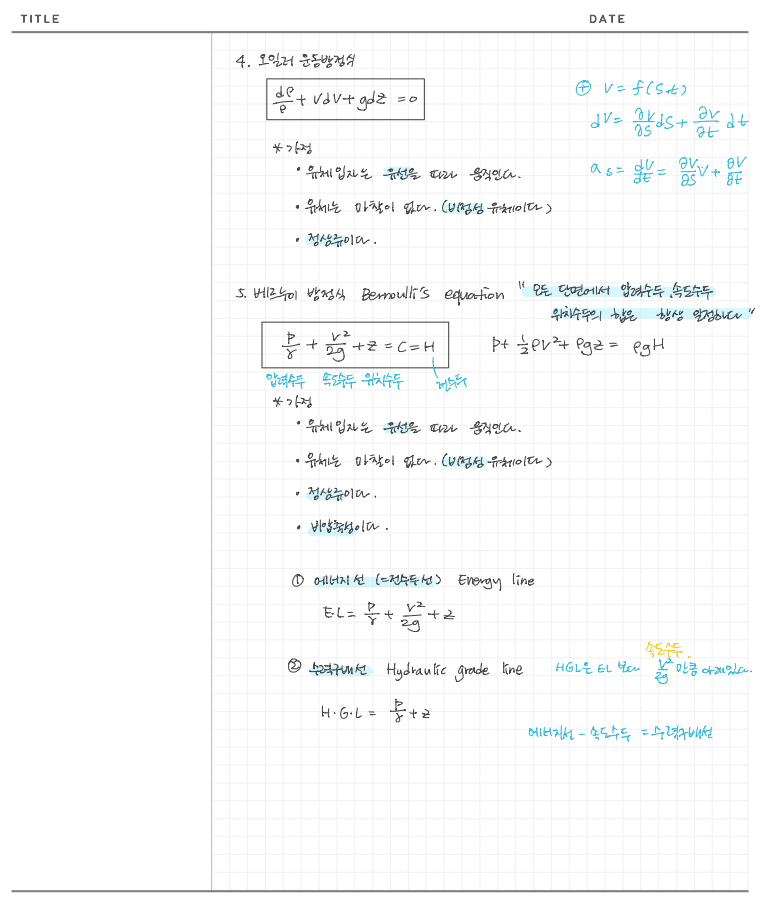 TITLE
DATE
4. 오일러 운동방정식
dp/ρ + VdV + gdz = 0
⊕ V = f(s,t)
dV = ∂V/∂s ds + ∂V/∂t dt
as = dV/dt = ∂V/∂s V + ∂V/∂t
* 가정
• 유체입자는 유선을 따라 움직인다.
• 유체는 마찰이 없다. (비점성 유체이다)
• 정상류이다.
5. 베르누이 방정식 Bernoulli's equation " 모든 단면에서 압력수두, 속도수두
위치수두의 합은 항상 일정하다 "
p/γ + V²/2g + z = C = H
p + 1/2 ρV² + ρgz = ρgH
압력수두 속도수두 위치수두 전수두
* 가정
• 유체입자는 유선을 따라 움직인다.
• 유체는 마찰이 없다. (비점성 유체이다)
• 정상류이다.
• 비압축성이다.
① 에너지선 (=전수두선) Energy line
E·L = p/γ + V²/2g + z
속도수두.
② 수력구배선 Hydraulic grade line
HGL은 EL 보다 V²/2g 만큼 아래있다.
H·G·L = p/γ + z
에너지선 - 속도수두 = 수력구배선